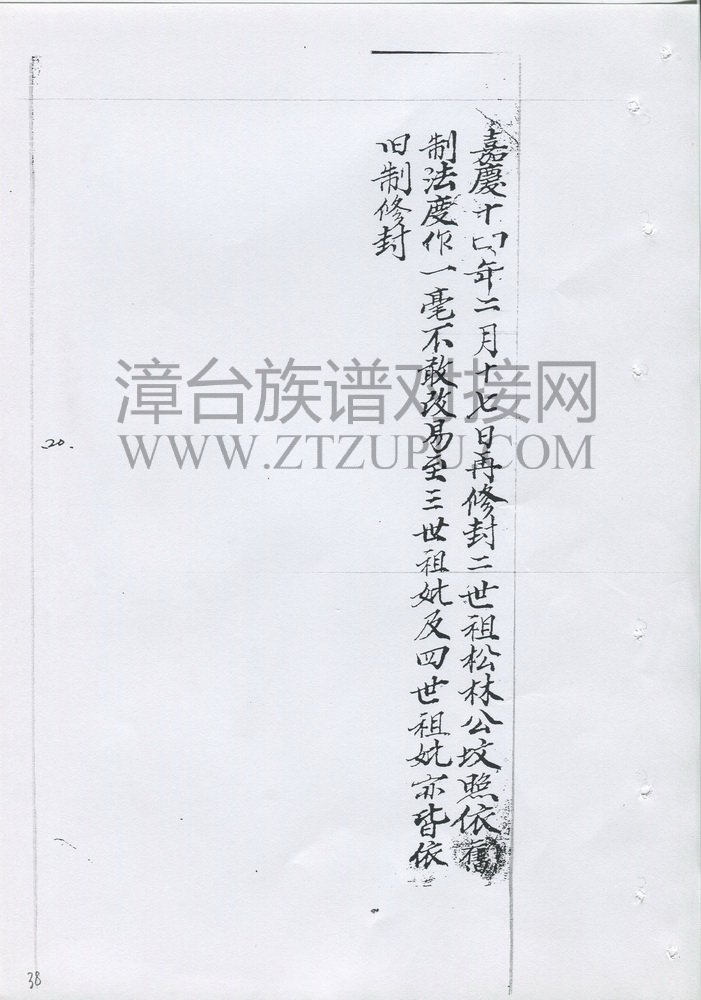 嘉慶十四年二月十七日再修封二世祖松林公坟照依舊
制法度作一毫不敢改易至三世祖妣及四世祖妣亦皆依
旧制修封
漳台族谱对接网
WWW.ZTZUPU.COM
20.
38